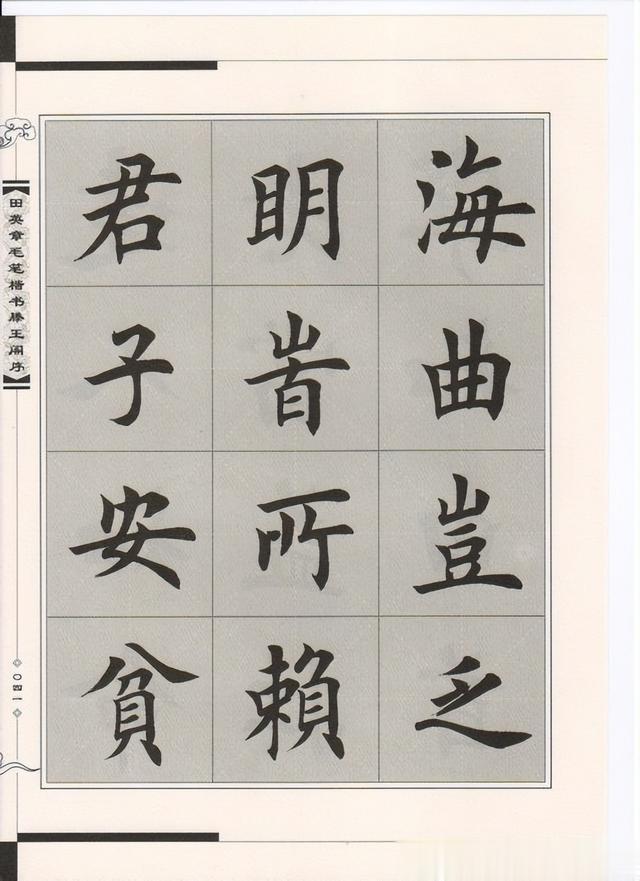 海曲豈乏
明旹所賴
君子安貧
【田英章毛笔楷书滕王阁序】
〇四一